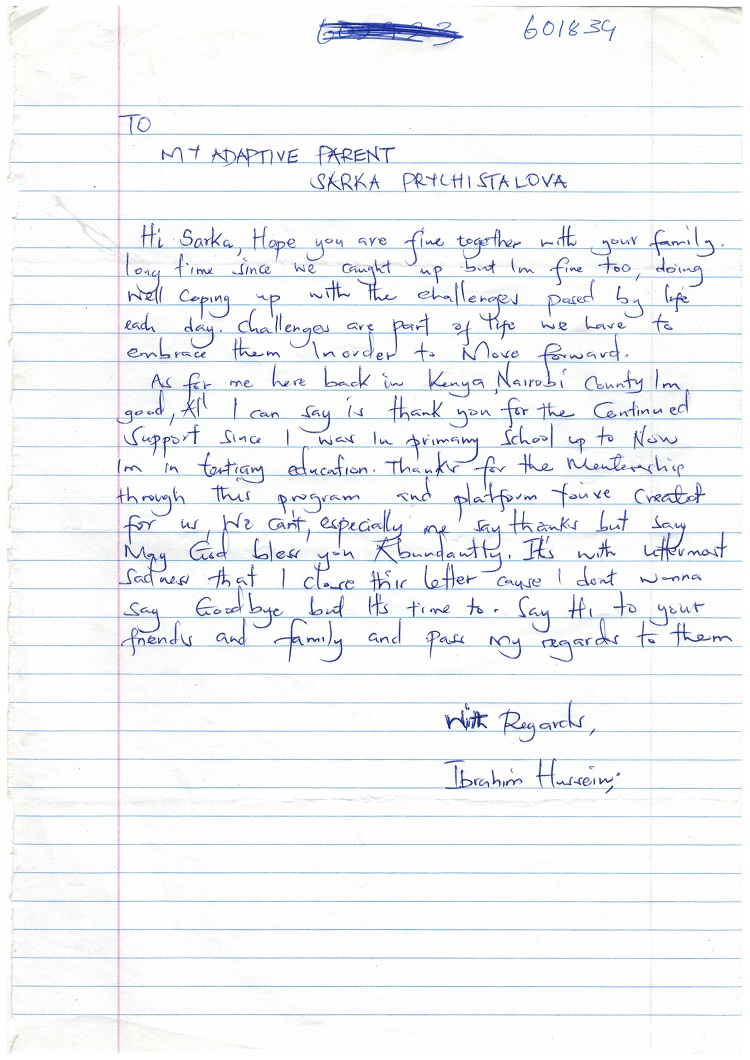 601839
TO
MY ADAPTIVE PARENT
SARKA PRYCHISTALOVA
Hi Sarka, Hope you are fine together with your family.
long time since we caught up but Im fine too, doing
well coping up with the challenges posed by life
each day. challenges are part of life we have to
embrace them Inorder to Move forward.
As for me here back in Kenya, Nairobi County Im
good, All I can say is thank you for the Continued
Support since I was In primary school up to Now
Im in tertiary education. Thanks for the Mentorship
through this program and platform You've Created
for us, We can't, especially me say thanks but say
May God bless you Abundantly. It's with uttermost
sadness that I close this letter cause I dont wanna
say Goodbye but Its time to. Say Hi to your
friends and family and pass my regards to them
With Regards,
Ibrahim Hussein;